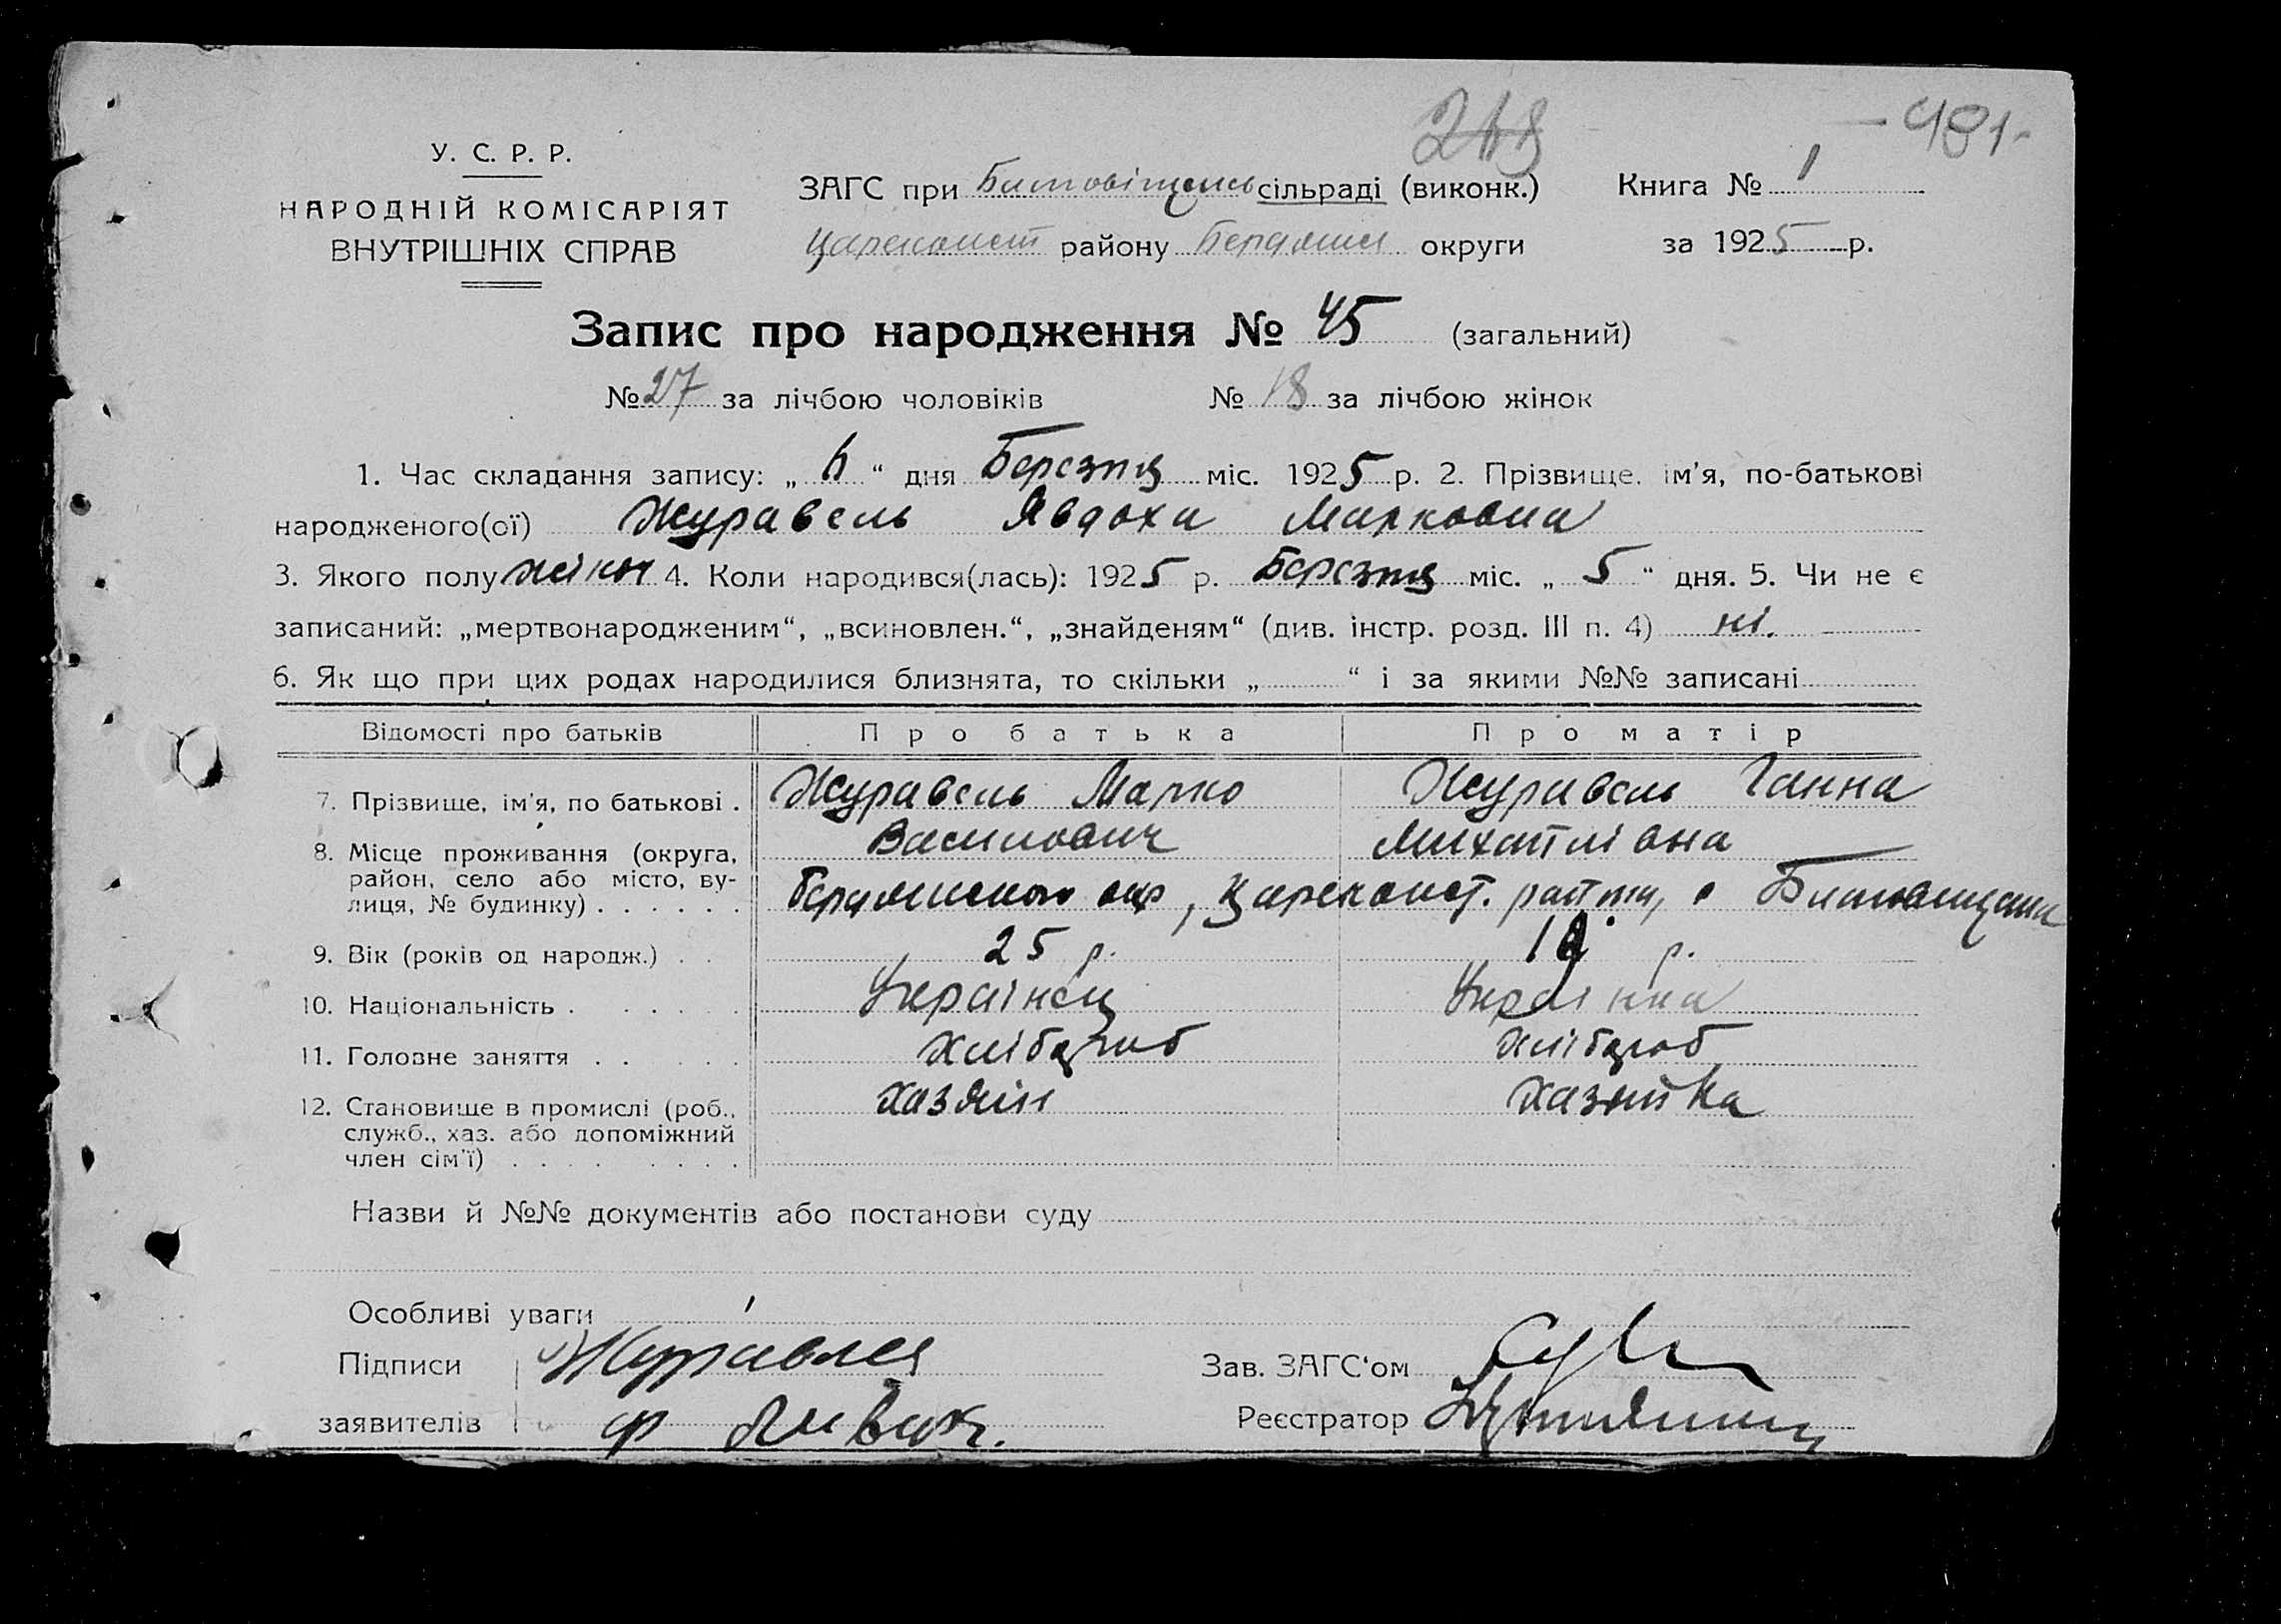 - 491 -
У. С. Р. Р.
НАРОДНІЙ КОМІСАРІЯТ
ВНУТРІШНІХ СПРАВ
ЗАГС при сільраді (виконк.)
Книга № 1
району округи
за 1925 р.
Запис про народження № 45 (загальний)
№ 27 за лічбою чоловіків № 18 за лічбою жінок
1. Час складання запису: „ 6 “ дня Березня міс. 1925 р. 2. Прізвище, ім'я, по-батькові
народженого(ої) Журавель Явдоха Марковна
3. Якого полу жіноч 4. Коли народився(лась): 1925 р. Березня міс. „ 5 “ дня. 5. Чи не є
записаний: „мертвонародженим“, „всиновлен.“, „знайденям“ (див. інстр. розд. III п. 4) ні.
6. Як що при цих родах народилися близнята, то скільки „ “ і за якими №№ записані
Відомості про батьків Про батька Про матір
7. Прізвище, ім'я, по батькові . Журавель Марко Журавель Ганна
Василович Михайлівна
8. Місце проживання (округа,
район, село або місто, ву-
лиця, № будинку) . . . . . .
9. Вік (років од народж.) . . 25 р. р.
10. Національність . . . . . . Українец Українка
11. Головне заняття . . . . . хлібороб хлібороб
12. Становище в промислі (роб., хазяин хазяйка
служб., хаз. або допоміжний
член сім'ї) . . . . . . . .
Назви й №№ документів або постанови суду
Особливі уваги
Підписи Журавлев Зав. ЗАГС'ом
заявителів Реєстратор